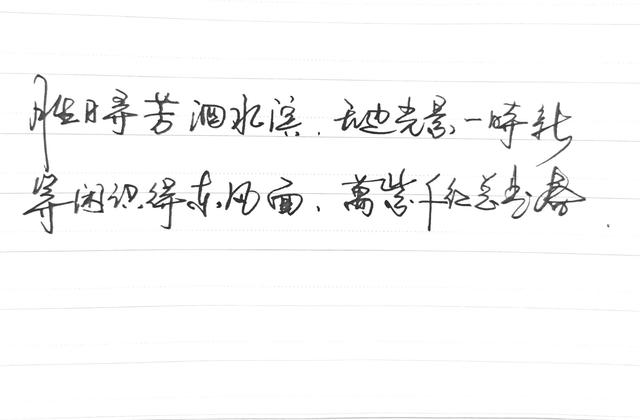 胜日寻芳泗水滨，无边光景一時新
等闲识得东风面，萬紫千红总是春.